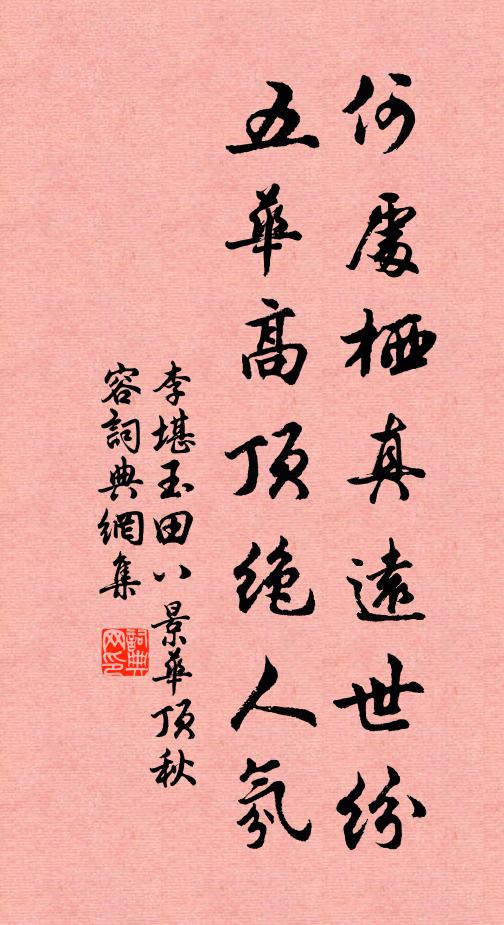 何處栖真遠世紛
五華高頂絕人氛
李堪玉田八景華頂秋
容詞典網集
詞典
网印